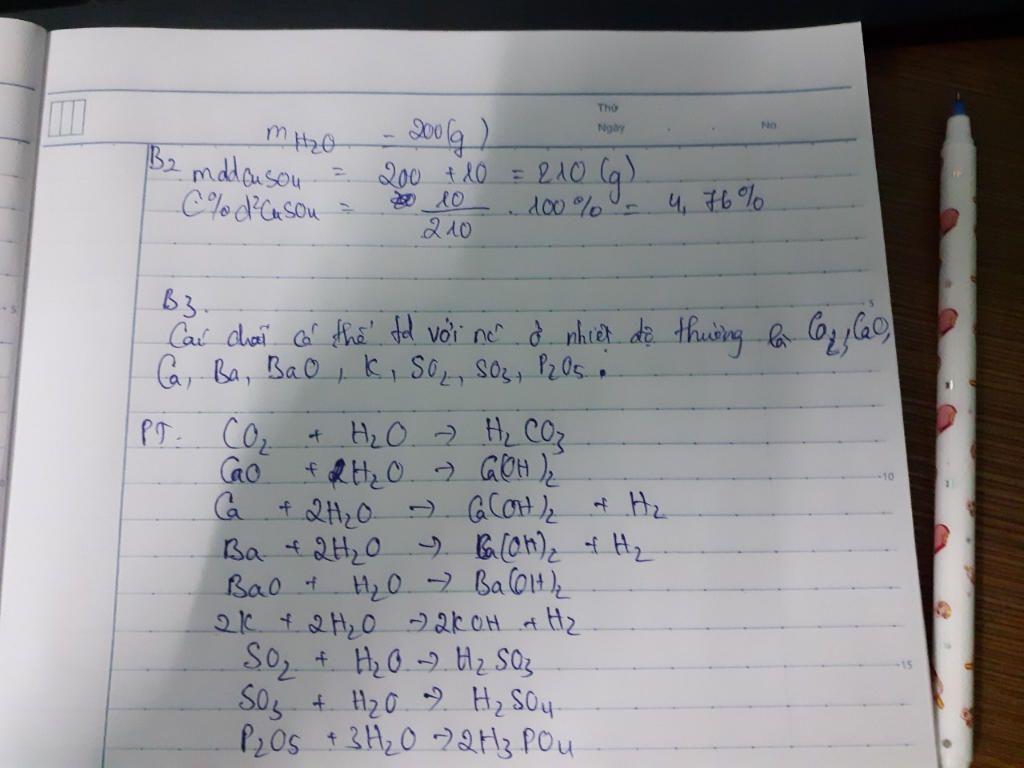 Thứ
Ngày . . No
m H2O = 200(g)
B2 mddCuSO4 = 200 + 10 = 210 (g)
C%d²CuSO4 = 10/210 . 100% = 4,76%
B3.
Các chất có thể td với nc ở nhiệt độ thường là CO2, CaO,
Ca, Ba, BaO, K, SO2, SO3, P2O5.
PT: CO2 + H2O → H2CO3
CaO + H2O → Ca(OH)2
Ca + 2H2O → Ca(OH)2 + H2
Ba + 2H2O → Ba(OH)2 + H2
BaO + H2O → Ba(OH)2
2K + 2H2O → 2KOH + H2
SO2 + H2O → H2SO3
SO3 + H2O → H2SO4
P2O5 + 3H2O → 2H3PO4
5
10
15